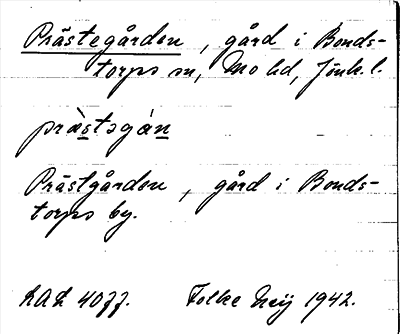 Prästegården, gård i Bonds-
torps sn, Mo hd, Jönk. l.
præ̀stəgá̱n
Prästgården, gård i Bonds-
torps by.
LAL 4077. Folke Ney 1942.